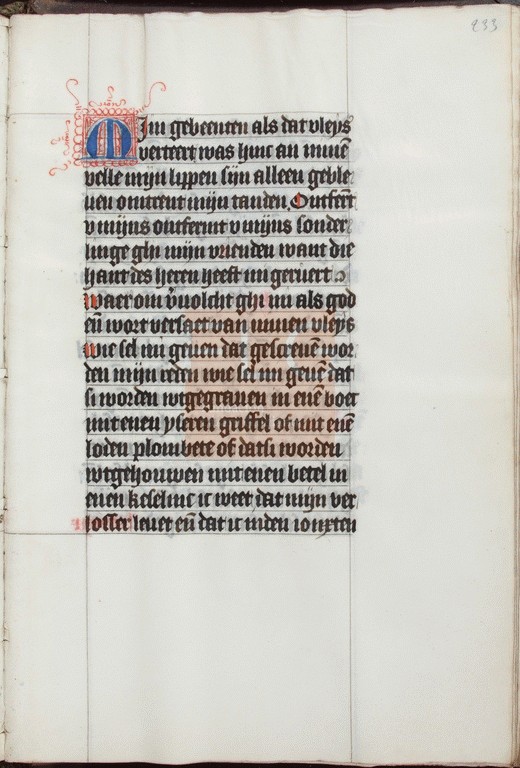 233
Mijn gebeenten als dat vleys
verteert was hinc an minē
velle mijn lippen sijn alleen geble
uen omtrent mijn tanden. Ontfert
v mijns ontfermt v mijns sonder
linge ghi mijn vrienden want die
hant des heren heeft mi geruert
waer om vūolcht ghi mi als god
eñ wort versaet van minen vleys
wie sel mi geuen dat gescreuē wor
den mijn reden wie sel mi geuē dat
si worden wtgegrauen in enē boec
mit enen yseren griffel of mit enē
loden plompete of dat si worden
wtgehouwen mit enen betel in
enen keselinc ic weet dat mijn ver
losser leuet eñ dat ic inden ioncxten